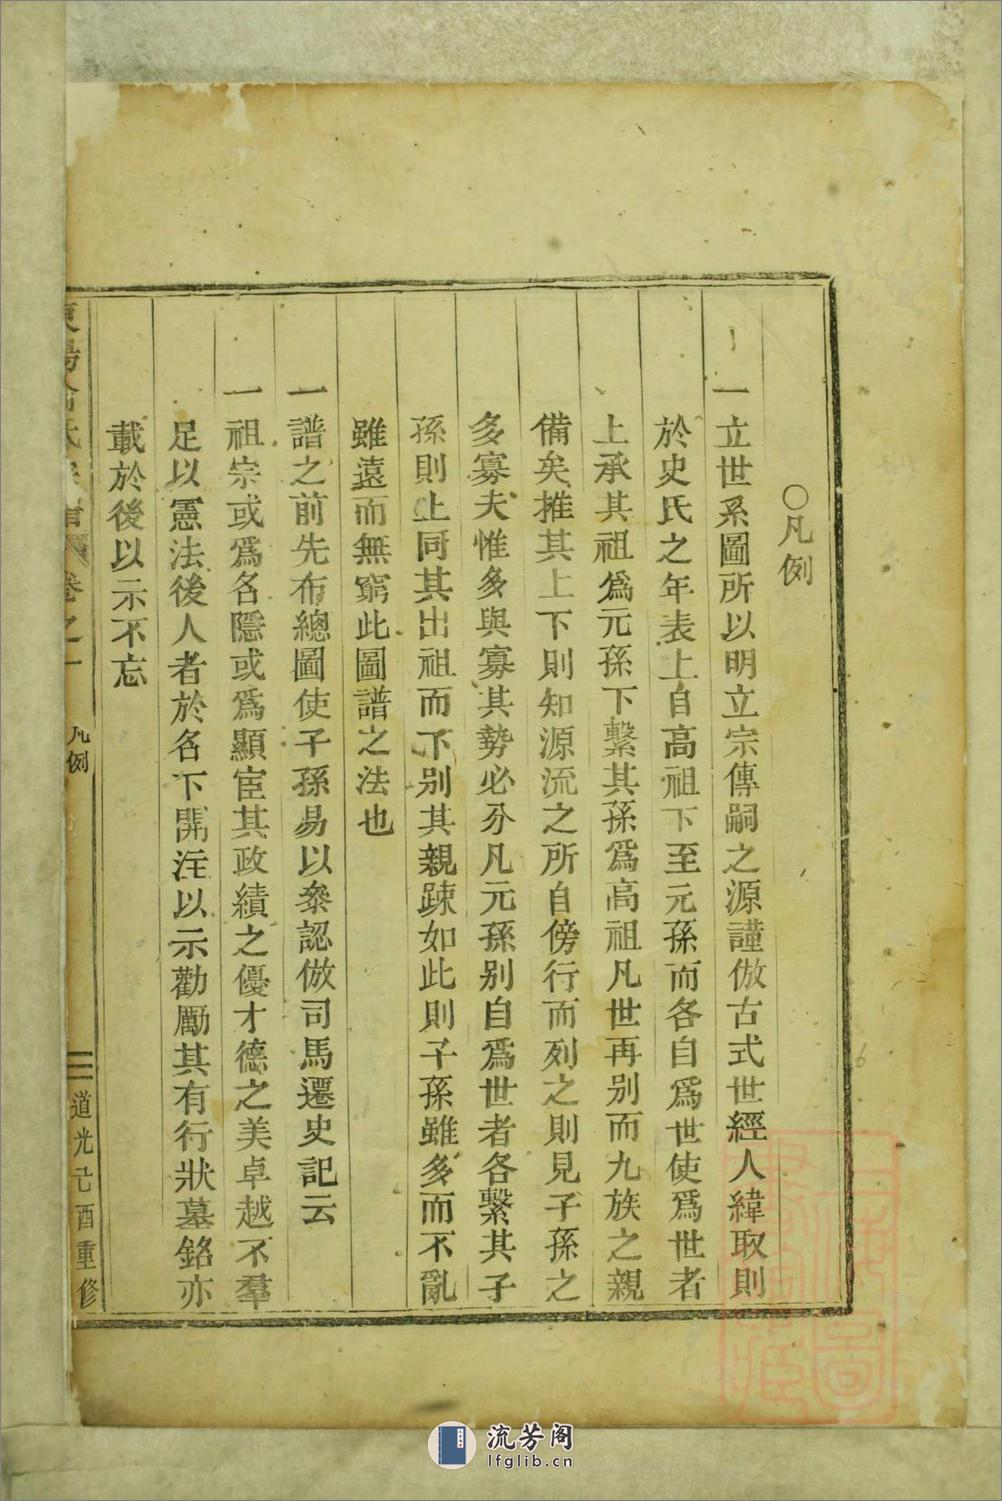 ○凡例
一立世系圖所以明立宗傳嗣之源謹倣古式世經人緯取則
於史氏之年表上自高祖下至元孫而各自爲世使爲世者
上承其祖爲元孫下繫其孫爲高祖凡世再别而九族之親
備矣推其上下則知源流之所自傍行而列之則見子孫之
多寡夫惟多與寡其勢必分凡元孫别自爲世者各繫其子
孫則上同其出祖而下别其親疎如此則子孫雖多而不亂
雖遠而無窮此圖譜之法也
一譜之前先布總圖使子孫易以叅認倣司馬遷史記云
一祖宗或爲名隱或爲顯宦其政績之優才德之美卓越不羣
足以憲法後人者於名下開注以示勸勵其有行狀墓銘亦
載於後以示不忘
東陽俞氏宗譜 卷之一 凡例 道光己酉重修
流芳阁
lfglib.cn